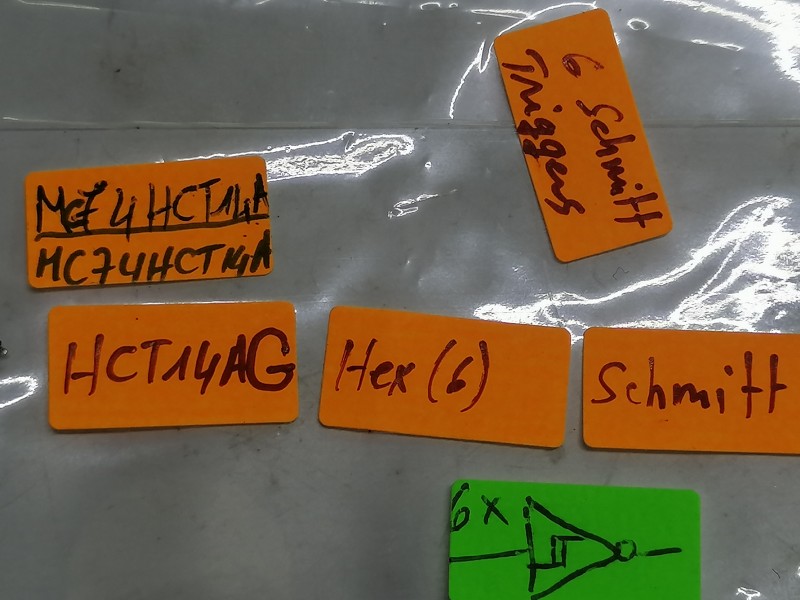 6 Schmitt
Triggers
MC74HCT14A
MC74HCT14A
HCT14AG
Hex (6)
Schmitt
6x